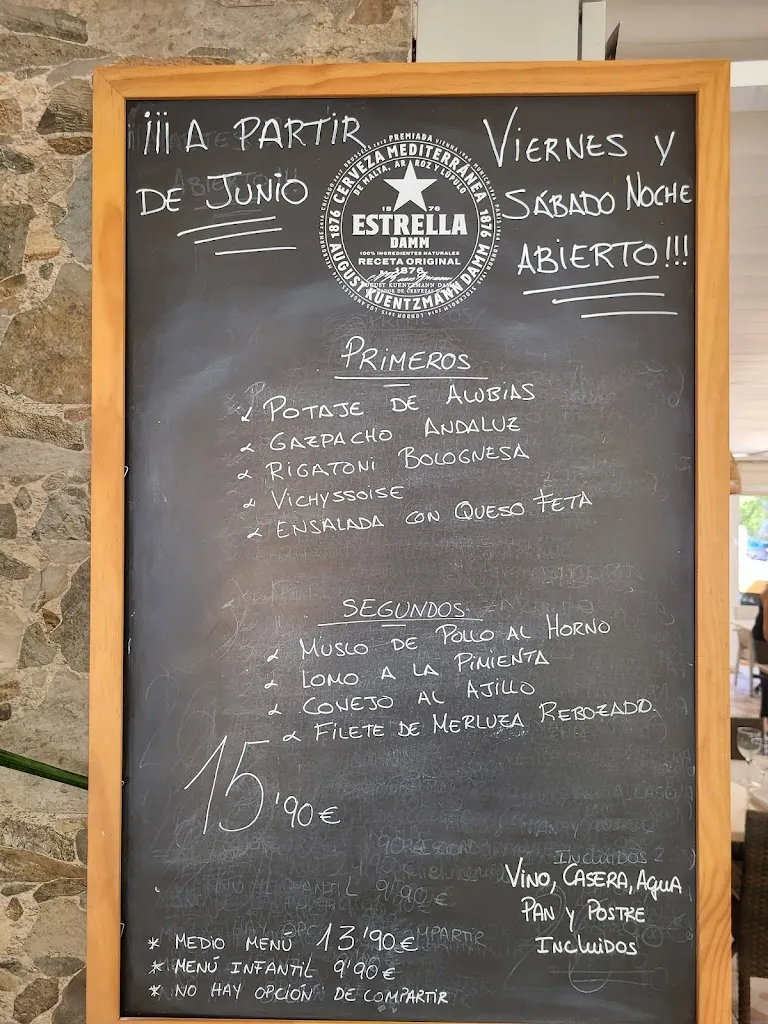 ¡¡¡A PARTIR
DE JUNIO
PREMIADA
CERVEZA MEDITERRÁNEA
DE MALTA, ARROZ Y LÚPULO
1876
1876
18 76
ESTRELLA
DAMM
100% INGREDIENTES NATURALES
RECETA ORIGINAL
1876
AUGUST KUENTZMANN DAMM
VIERNES Y
SÁBADO NOCHE
ABIERTO!!!
PRIMEROS
POTAJE DE ALUBIAS
GAZPACHO ANDALUZ
RIGATONI BOLOGNESA
VICHYSSOISE
ENSALADA CON QUESO FETA
SEGUNDOS
MUSLO DE POLLO AL HORNO
LOMO A LA PIMIENTA
CONEJO AL AJILLO
FILETE DE MERLUZA REBOZADO.
15'90€
VINO, CASERA, AGUA
PAN Y POSTRE
INCLUIDOS
* MEDIO MENÚ 13'90€
* MENÚ INFANTIL 9'90€
* NO HAY OPCIÓN DE COMPARTIR